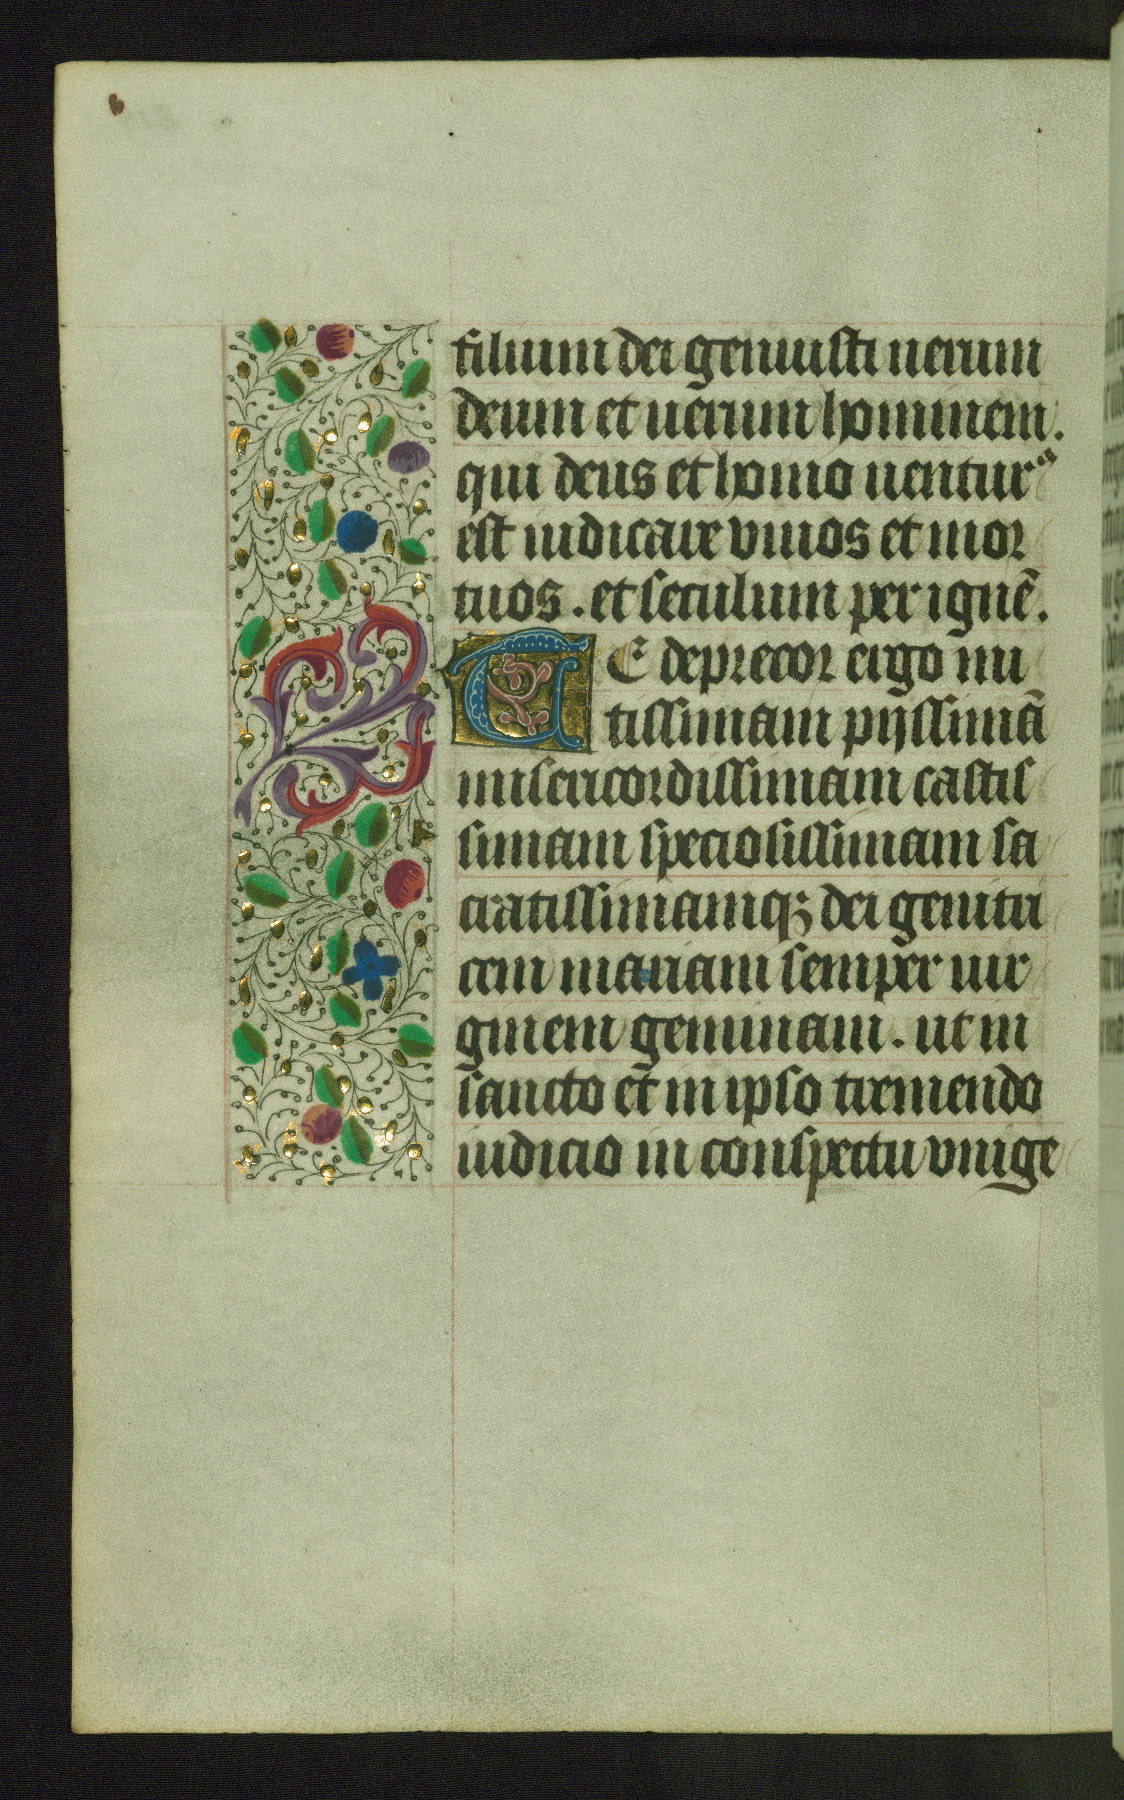 filium dei genuisti uerum
deum et uerum hominem.
qui deus et homo uenturꝰ
est iudicare viuos et mor
tuos . et seculum per ignē.
TE deprecor ergo mi
tissimam pijssimā
misericordissimam castis
simam speciosissimam sa
cratissimamqꝫ dei genitri
cem mariam semper uir
ginem geminam . ut in
sancto et in ipso tremendo
iudicio in conspectu vnige